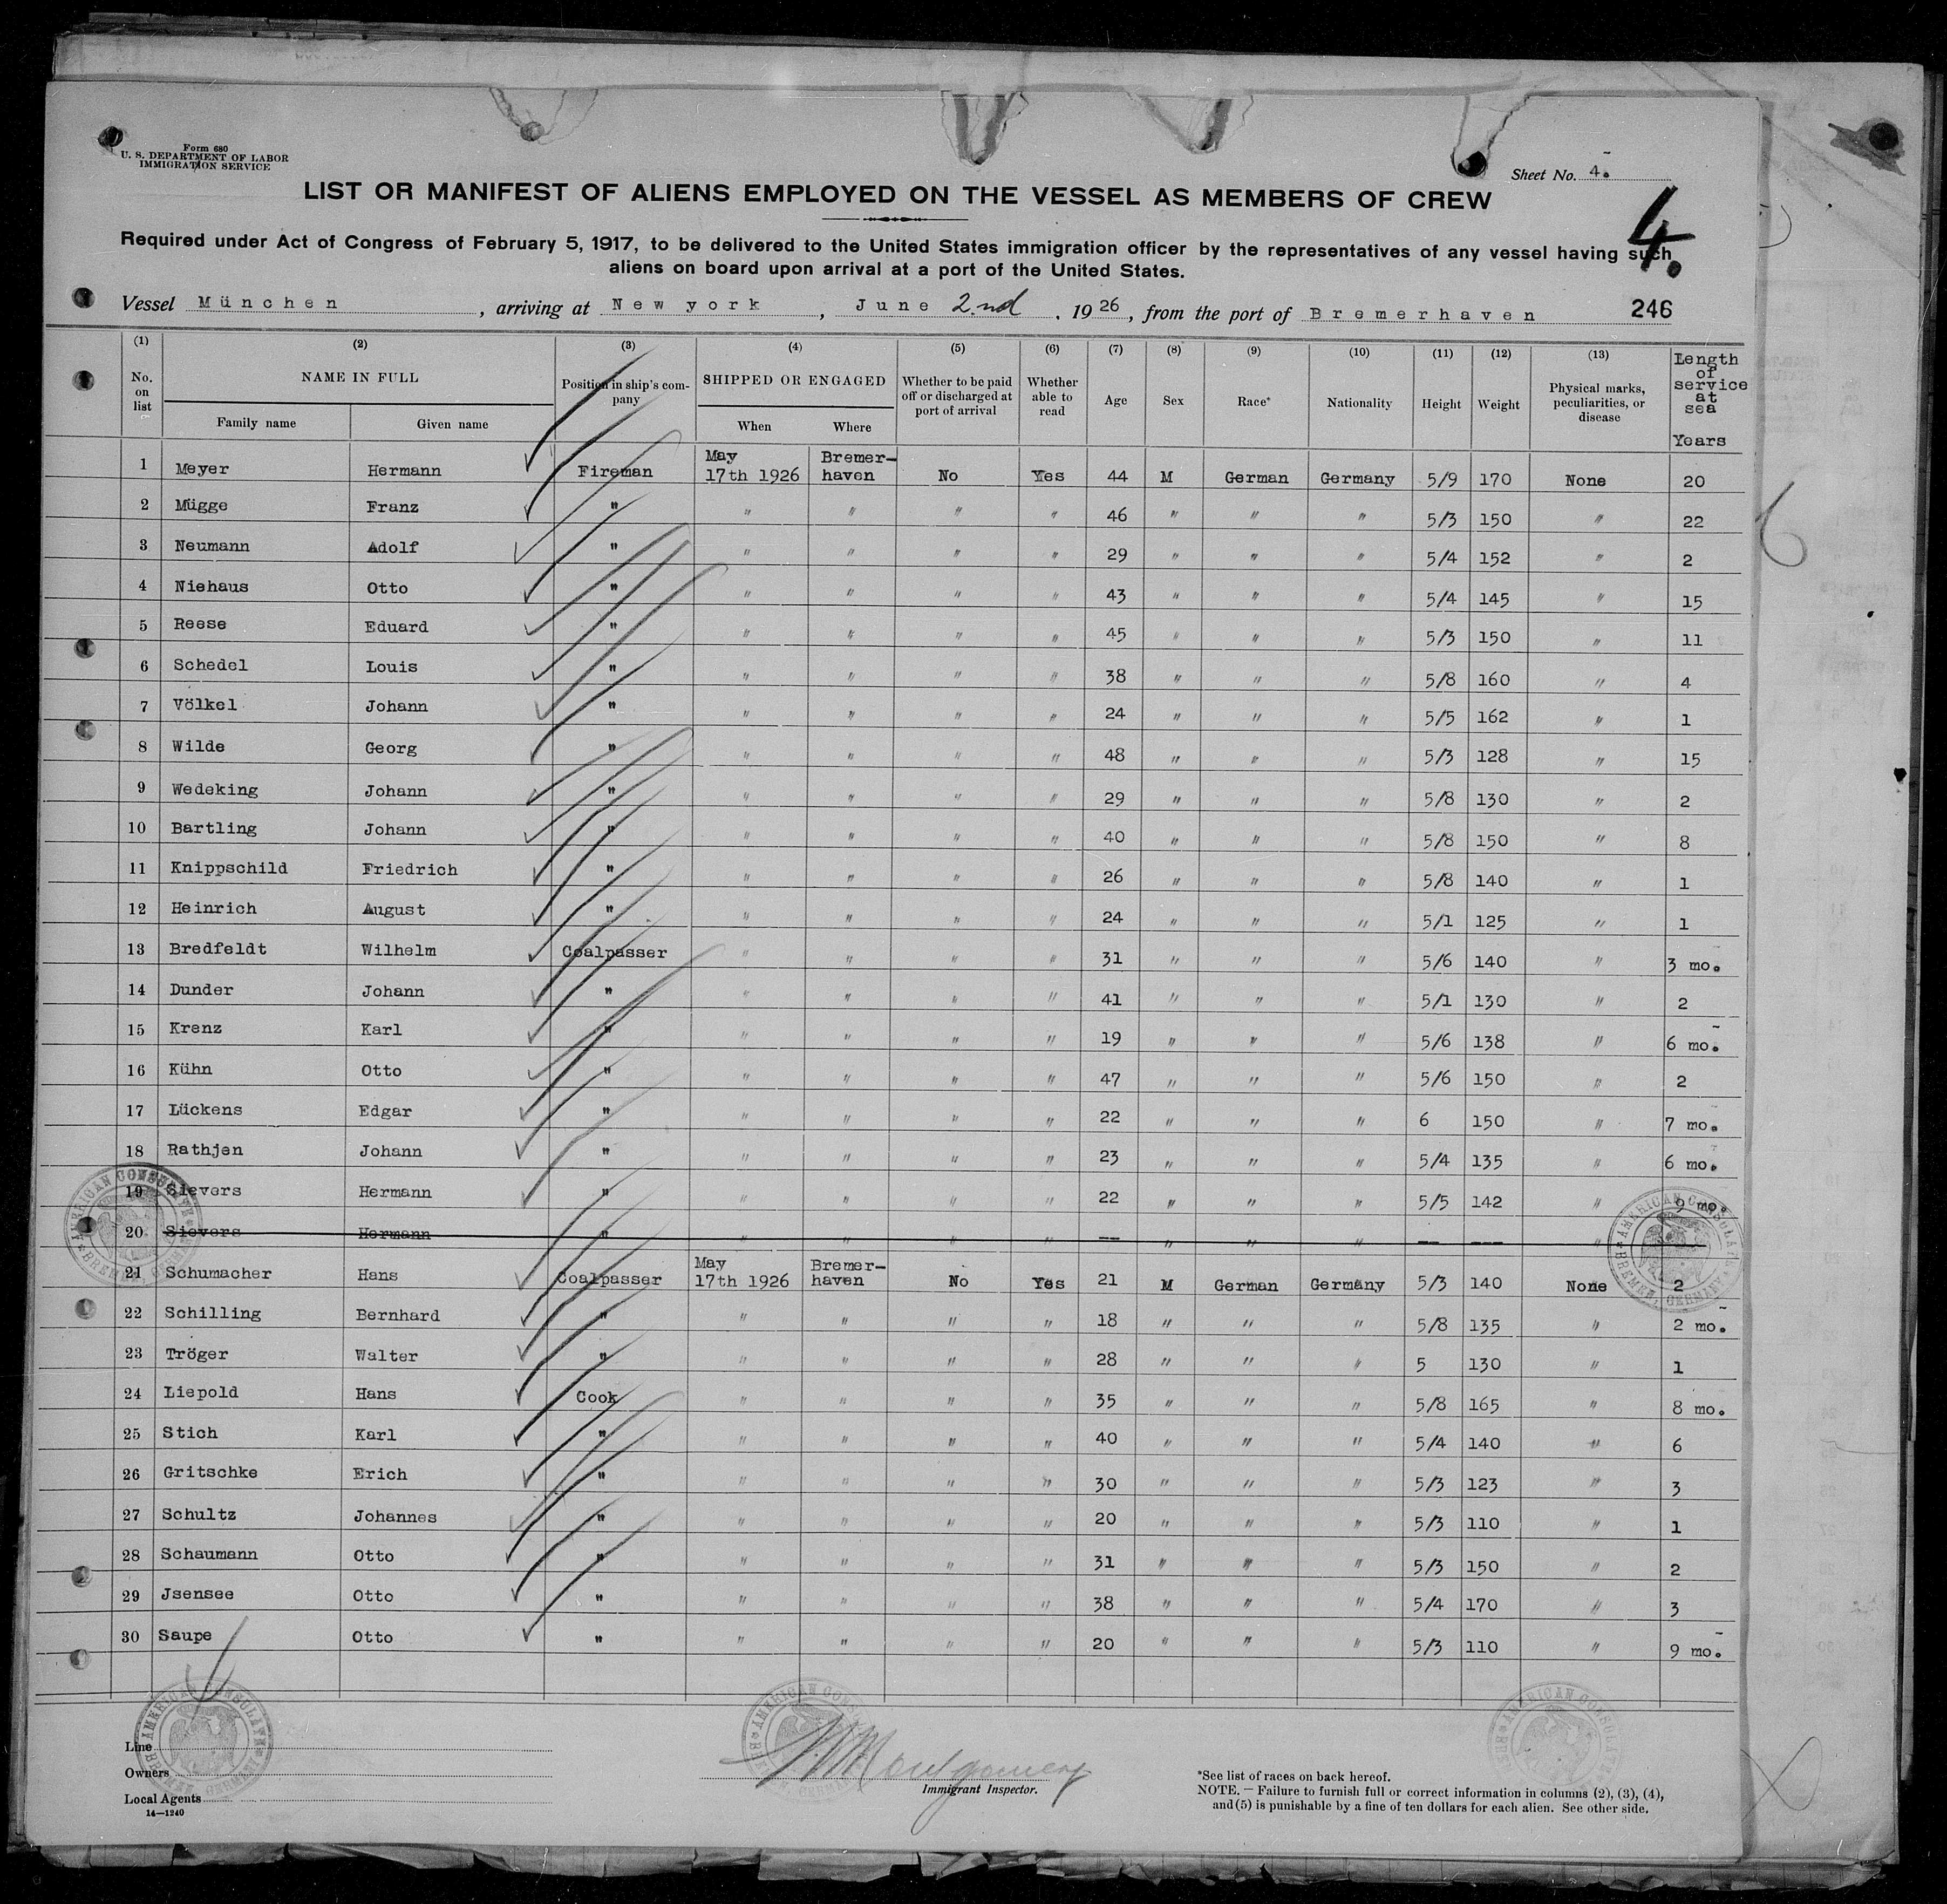 Form 680
U. S. DEPARTMENT OF LABOR
IMMIGRATION SERVICE
Sheet No. 4.
LIST OR MANIFEST OF ALIENS EMPLOYED ON THE VESSEL AS MEMBERS OF CREW
4.
Required under Act of Congress of February 5, 1917, to be delivered to the United States immigration officer by the representatives of any vessel having such
aliens on board upon arrival at a port of the United States.
Vessel München, arriving at New york, June 2nd, 1926, from the port of Bremerhaven 246
(1) (2) (3) (4) (5) (6) (7) (8) (9) (10) (11) (12) (13)
No. on list | NAME IN FULL | Position in ship's company | SHIPPED OR ENGAGED | Whether to be paid off or discharged at port of arrival | Whether able to read | Age | Sex | Race* | Nationality | Height | Weight | Physical marks, peculiarities, or disease | Length of service at sea Years
Family name | Given name | When | Where
1 Meyer Hermann Fireman May 17th 1926 Bremer-haven No Yes 44 M German Germany 5/9 170 None 20
2 Mügge Franz " " " " " 46 " " " 5/3 150 " 22
3 Neumann Adolf " " " " " 29 " " " 5/4 152 " 2
4 Niehaus Otto " " " " " 43 " " " 5/4 145 " 15
5 Reese Eduard " " " " " 45 " " " 5/3 150 " 11
6 Schedel Louis " " " " " 38 " " " 5/8 160 " 4
7 Völkel Johann " " " " " 24 " " " 5/5 162 " 1
8 Wilde Georg " " " " " 48 " " " 5/3 128 " 15
9 Wedeking Johann " " " " " 29 " " " 5/8 130 " 2
10 Bartling Johann " " " " " 40 " " " 5/8 150 " 8
11 Knippschild Friedrich " " " " " 26 " " " 5/8 140 " 1
12 Heinrich August " " " " " 24 " " " 5/1 125 " 1
13 Bredfeldt Wilhelm Coalpasser " " " " 31 " " " 5/6 140 " 3 mo.
14 Dunder Johann " " " " " 41 " " " 5/1 130 " 2
15 Krenz Karl " " " " " 19 " " " 5/6 138 " 6 mo.
16 Kühn Otto " " " " " 47 " " " 5/6 150 " 2
17 Lückens Edgar " " " " " 22 " " " 6 150 " 7 mo.
18 Rathjen Johann " " " " " 23 " " " 5/4 135 " 6 mo.
19 Sievers Hermann " " " " " 22 " " " 5/5 142 " 9 mo.
20 Sievers Hermann " " " " " -- " " " -- --- "
21 Schumacher Hans Coalpasser May 17th 1926 Bremer-haven No Yes 21 M German Germany 5/3 140 None 2
22 Schilling Bernhard " " " " " 18 " " " 5/8 135 " 2 mo.
23 Tröger Walter " " " " " 28 " " " 5 130 " 1
24 Liepold Hans Cook " " " " 35 " " " 5/8 165 " 8 mo.
25 Stich Karl " " " " " 40 " " " 5/4 140 " 6
26 Gritschke Erich " " " " " 30 " " " 5/3 123 " 3
27 Schultz Johannes " " " " " 20 " " " 5/3 110 " 1
28 Schaumann Otto " " " " " 31 " " " 5/3 150 " 2
29 Jsensee Otto " " " " " 38 " " " 5/4 170 " 3
30 Saupe Otto " " " " " 20 " " " 5/3 110 " 9 mo.
AMERICAN CONSULATE BREMEN, GERMANY
AMERICAN CONSULATE BREMEN, GERMANY
AMERICAN CONSULATE BREMEN, GERMANY
AMERICAN CONSULATE
AMERICAN CONSULATE
Line
Owners
Local Agents
14—1240
Montgomery
Immigrant Inspector.
*See list of races on back hereof.
NOTE.—Failure to furnish full or correct information in columns (2), (3), (4),
and (5) is punishable by a fine of ten dollars for each alien. See other side.